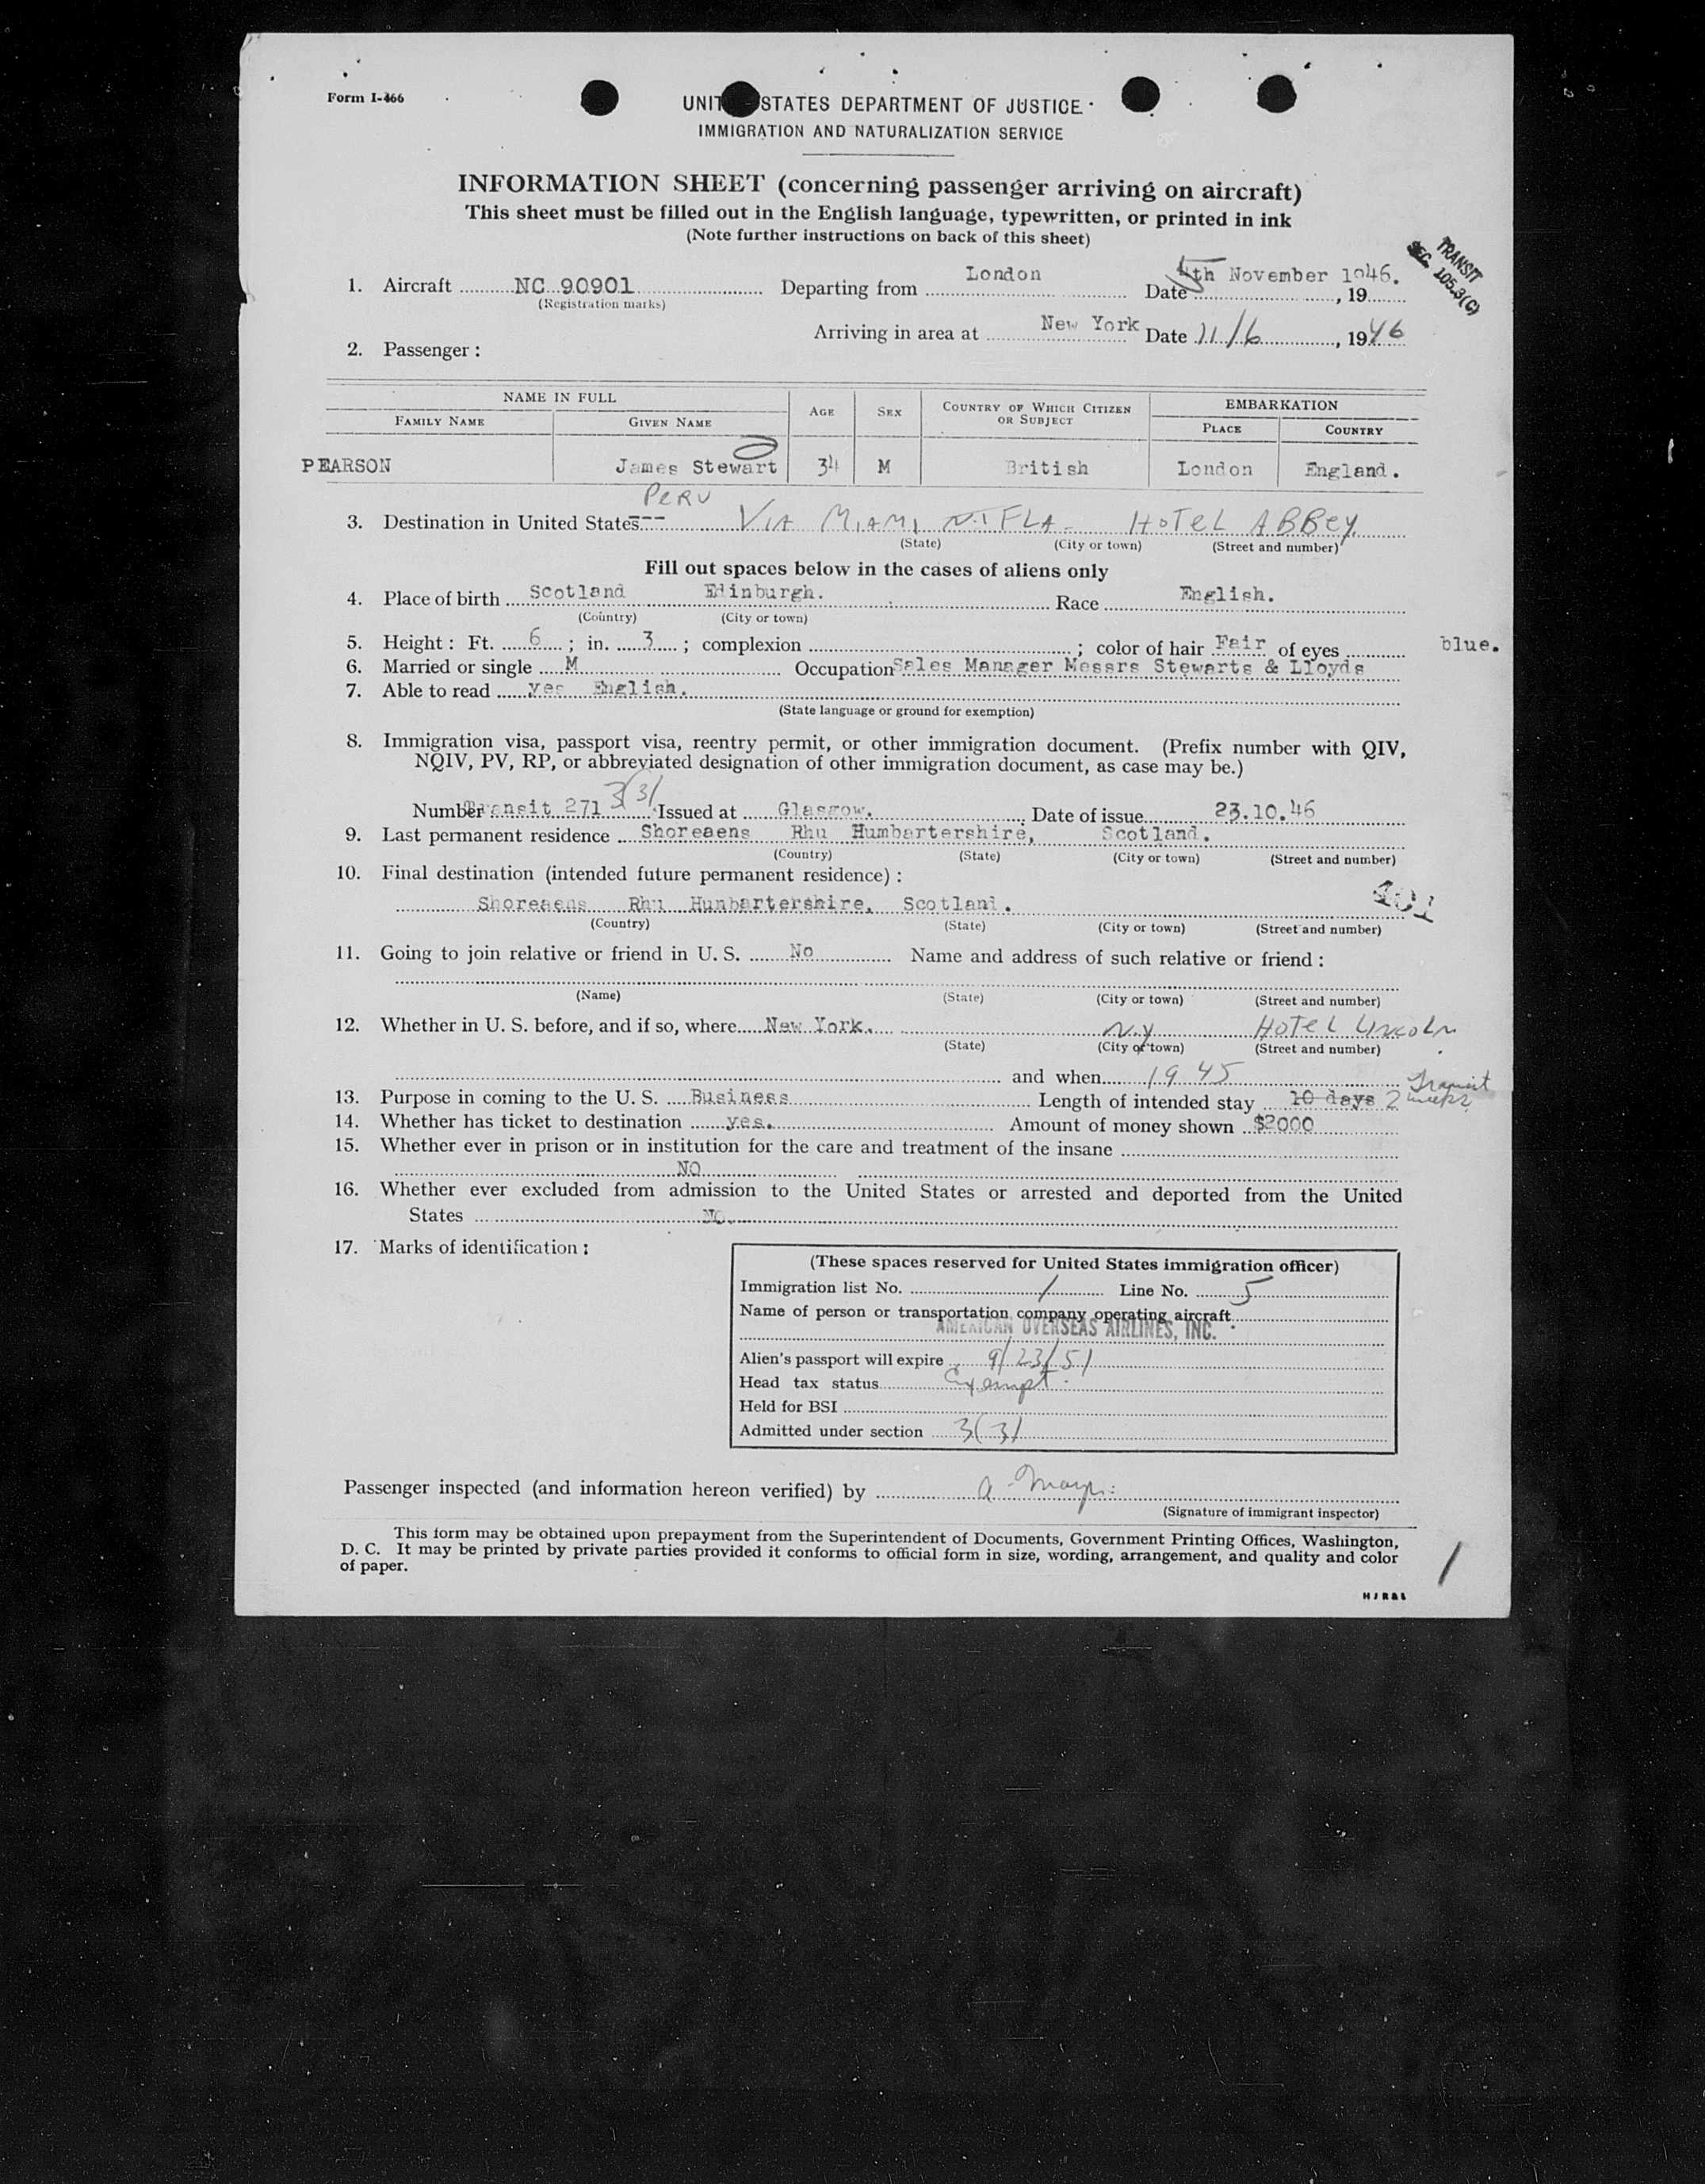 Form I-466
UNIT STATES DEPARTMENT OF JUSTICE
IMMIGRATION AND NATURALIZATION SERVICE
INFORMATION SHEET (concerning passenger arriving on aircraft)
This sheet must be filled out in the English language, typewritten, or printed in ink
(Note further instructions on back of this sheet)
TRANSIT
SEC. 105.3(C)
1. Aircraft NC 90901 Departing from London Date 5th November 1946. , 19
(Registration marks)
Arriving in area at New York Date 11/6 , 1946
2. Passenger :
NAME IN FULL AGE SEX COUNTRY OF WHICH CITIZEN OR SUBJECT EMBARKATION
FAMILY NAME GIVEN NAME PLACE COUNTRY
PEARSON James Stewart 34 M British London England.
PERU
3. Destination in United States --- VIA MIAMI FLA - HOTEL ABBEY
(State) (City or town) (Street and number)
Fill out spaces below in the cases of aliens only
4. Place of birth Scotland Edinburgh. Race English.
(Country) (City or town)
5. Height : Ft. 6 ; in. 3 ; complexion ; color of hair Fair of eyes blue.
6. Married or single M Occupation Sales Manager Messrs Stewarts & Lloyds
7. Able to read yes English.
(State language or ground for exemption)
8. Immigration visa, passport visa, reentry permit, or other immigration document. (Prefix number with QIV,
NQIV, PV, RP, or abbreviated designation of other immigration document, as case may be.)
Number Transit 271 3(3) Issued at Glasgow. Date of issue 23.10.46
9. Last permanent residence Shoreaens Rhu Humbartershire, Scotland.
(Country) (State) (City or town) (Street and number)
10. Final destination (intended future permanent residence) :
401
Shoreaens Rhu Hunbartershire, Scotland.
(Country) (State) (City or town) (Street and number)
11. Going to join relative or friend in U. S. No Name and address of such relative or friend :
(Name) (State) (City or town) (Street and number)
12. Whether in U. S. before, and if so, where New York. N.Y HOTEL LINCOLN
(State) (City or town) (Street and number)
and when 1945
13. Purpose in coming to the U. S. Business Length of intended stay 10 days 2 weeks Transit
14. Whether has ticket to destination yes. Amount of money shown $2000
15. Whether ever in prison or in institution for the care and treatment of the insane
NO
16. Whether ever excluded from admission to the United States or arrested and deported from the United
States NO.
17. Marks of identification :
(These spaces reserved for United States immigration officer)
Immigration list No. 1 Line No. 5
Name of person or transportation company operating aircraft
AMERICAN OVERSEAS AIRLINES, INC.
Alien's passport will expire 9/23/51
Head tax status Exempt.
Held for BSI
Admitted under section 3(3)
Passenger inspected (and information hereon verified) by
(Signature of immigrant inspector)
This form may be obtained upon prepayment from the Superintendent of Documents, Government Printing Offices, Washington,
D. C. It may be printed by private parties provided it conforms to official form in size, wording, arrangement, and quality and color
of paper.
1